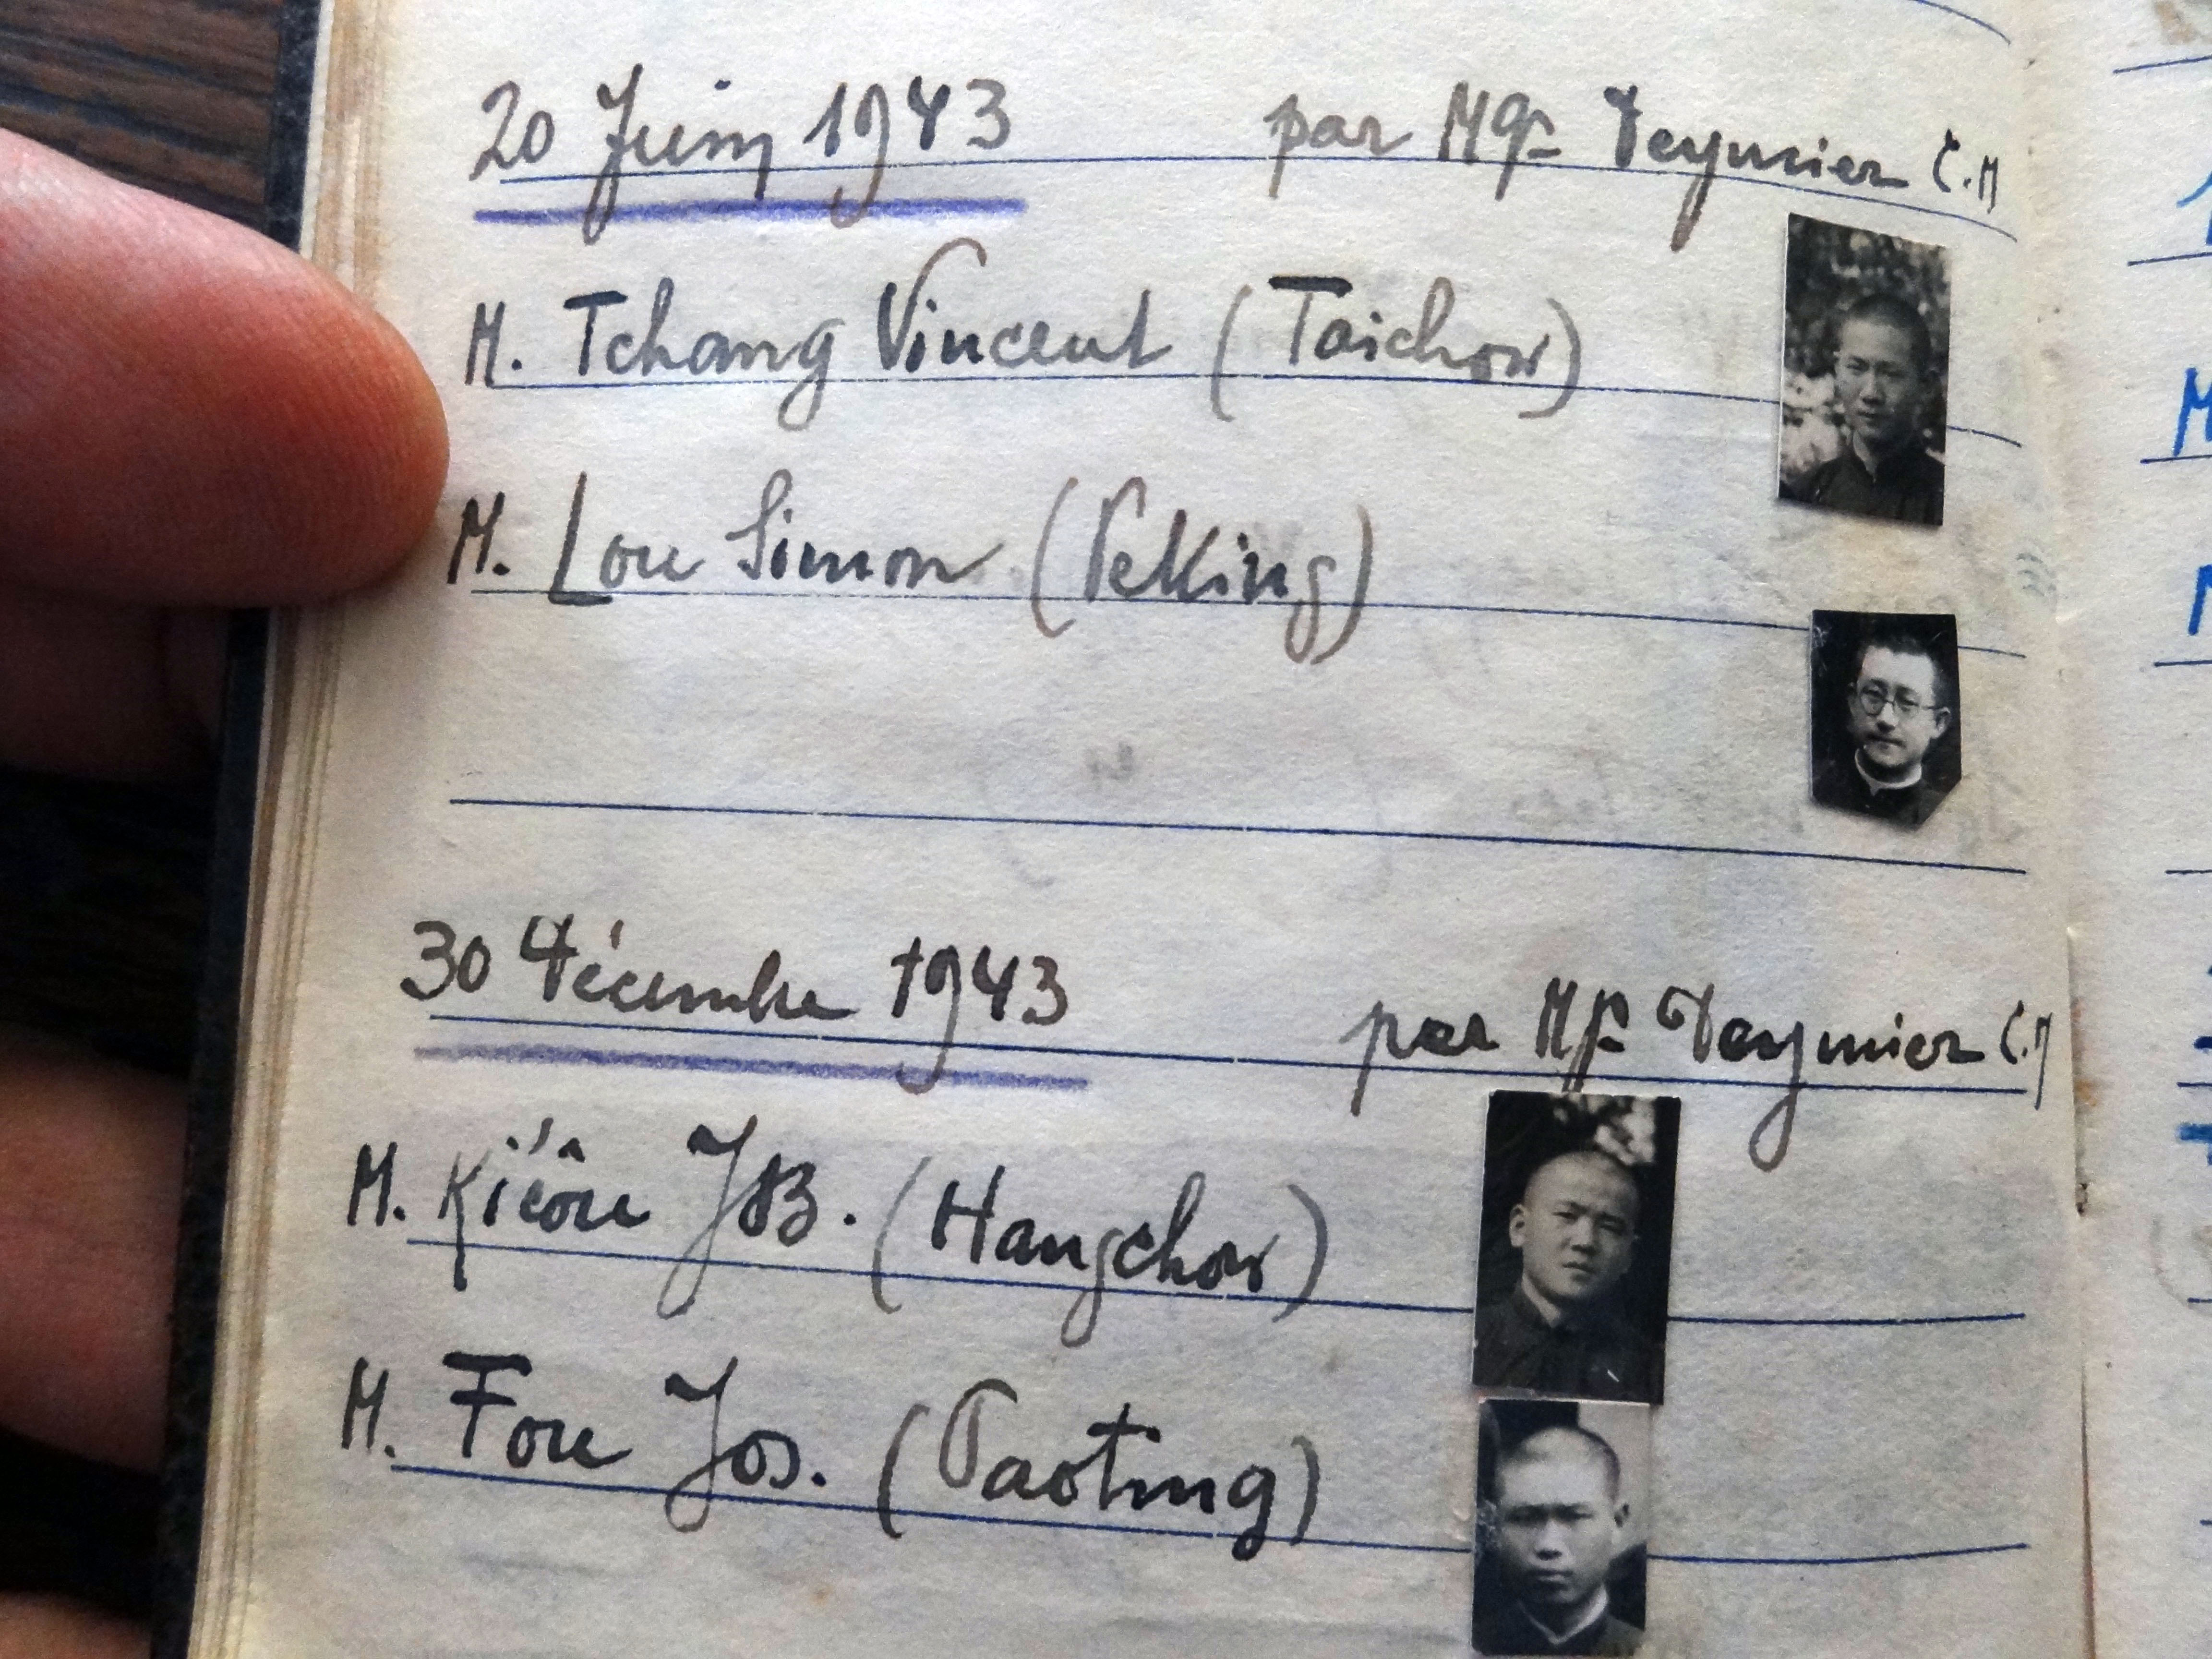 20 Juin 1943 par Mgr Deymier C.M
M. Tchang Vincent (Taichow)
M. Lou Simon (Peking)
30 Décembre 1943 par Mgr Deymier C.M
M. Kïéôu JB. (Hangchow)
M. Fou Jos. (Paoting)